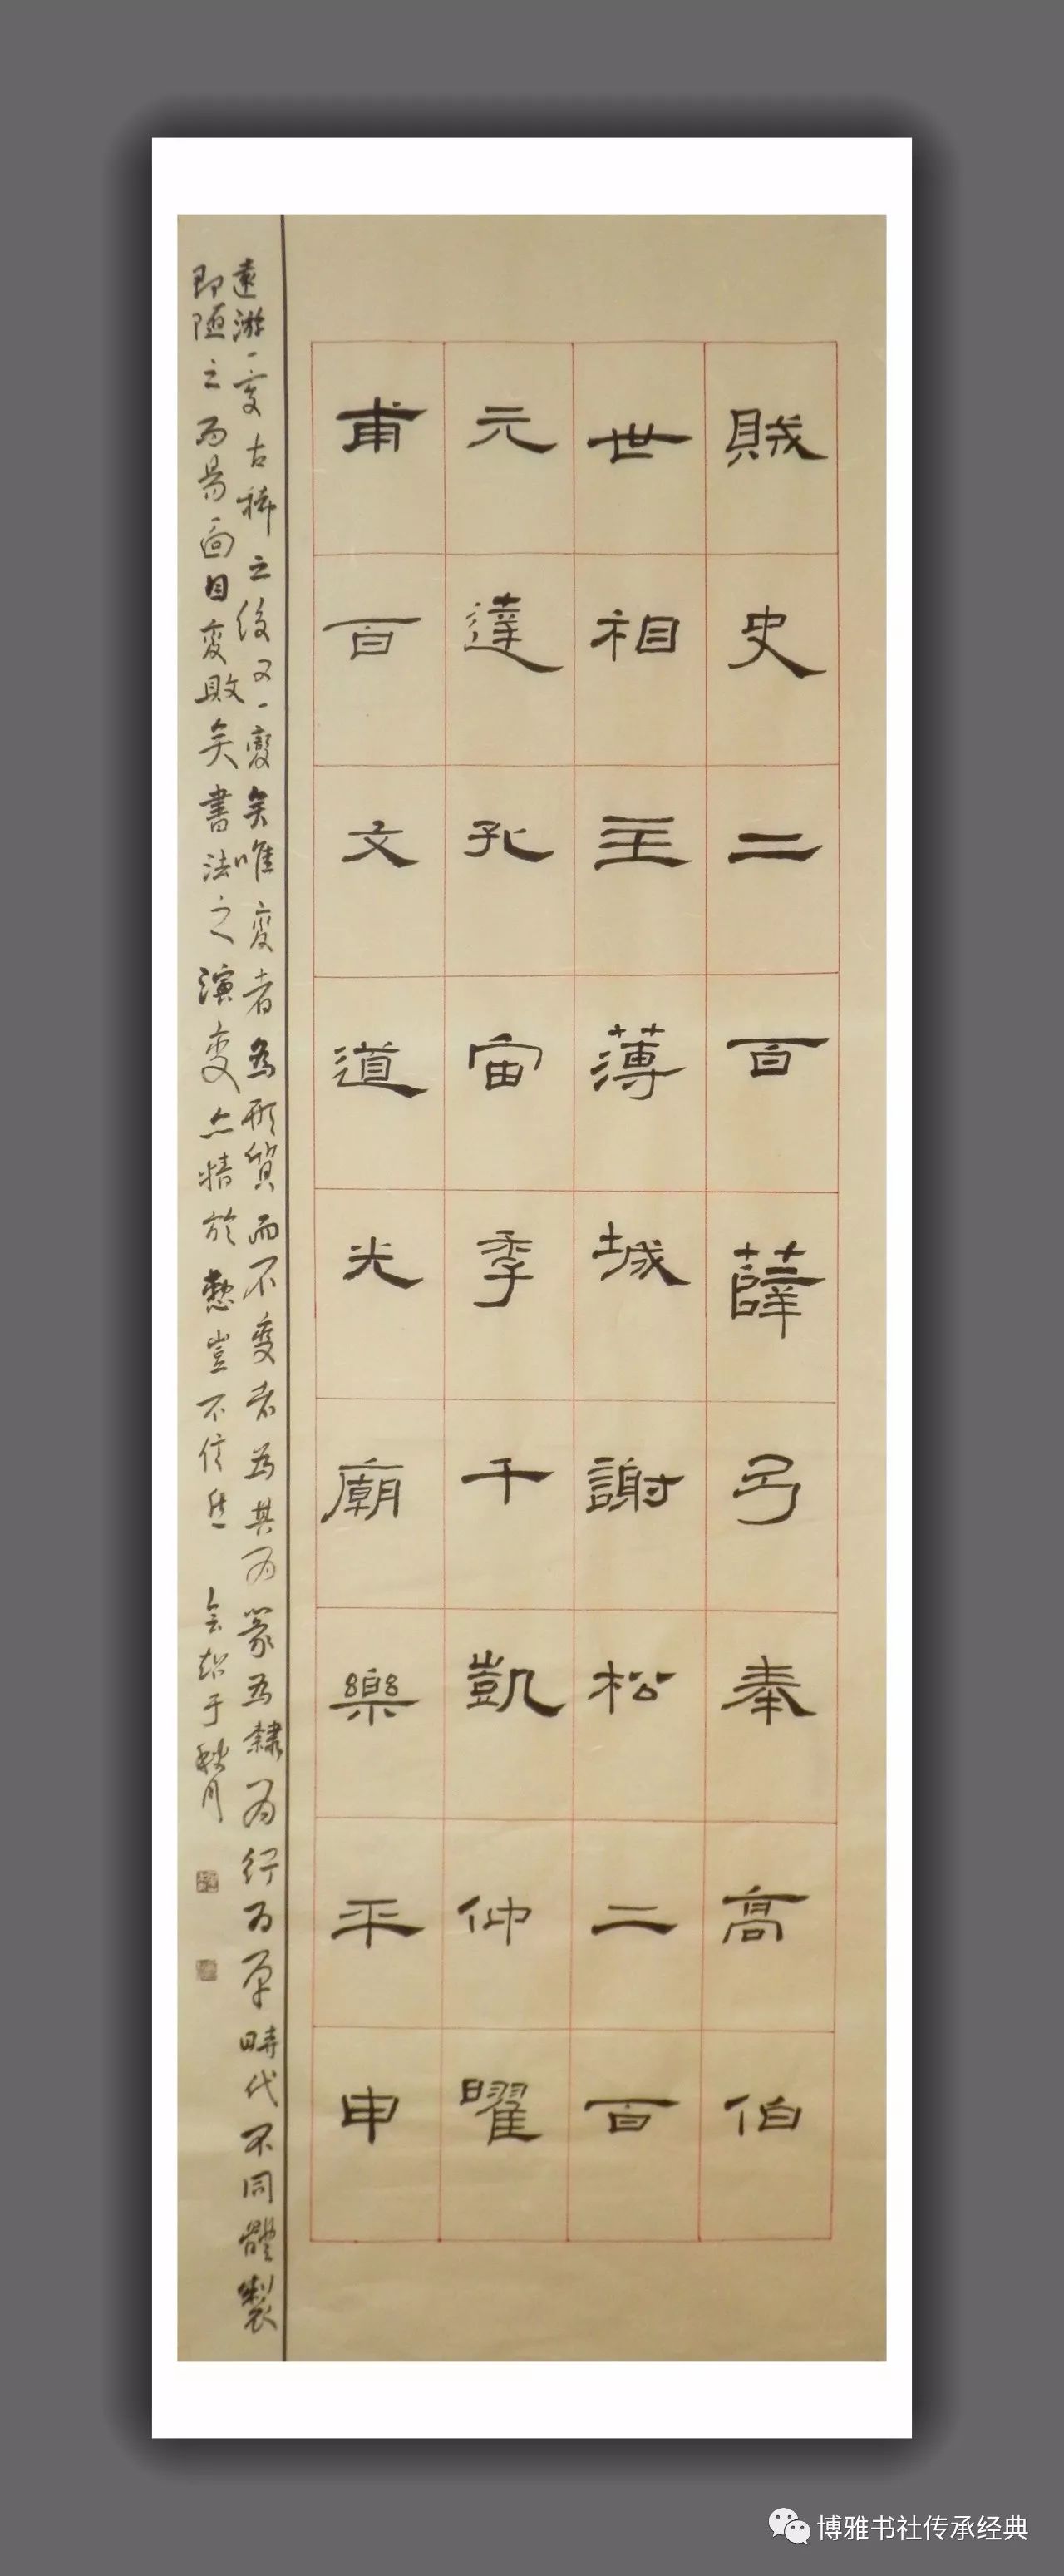 賊史二百薛弓奉高伯
世相主薄城謝松二百
元達孔宙季千凱仲曜
甫百文道光廟樂平申
遠游一变古稀之後又一變矣唯变者為形質而不变者為其為篆為隸為行為草時代不同體製
即随之而易面目变敗矣書法之演变亦精於
豈不信然
会超于秋月
博雅书社传承经典